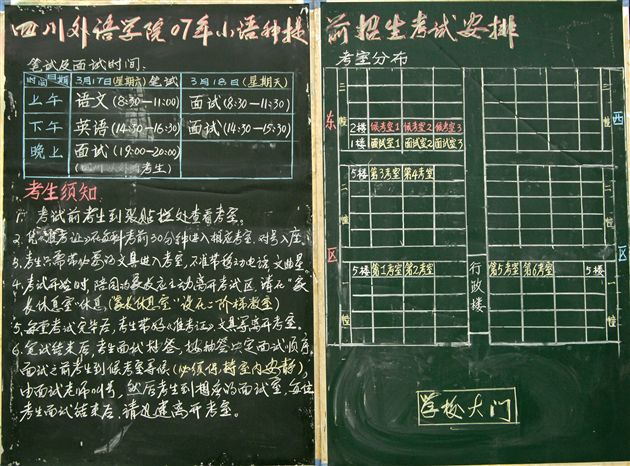 四川外语学院07年小语种提前招生考试安排
笔试及面试时间:
时间 日期 3月17日(星期六)笔试 3月18日(星期天)
上午 语文(8:30—11:00) 面试(8:30—11:30)
下午 英语(14:30—16:30) 面试(14:30—15:30)
晚上 面试(19:00—20:00)
考生)
考生须知:
1. 考试前考生到张贴栏处查看考室。
2. 凭《准考证》在每科考前30分钟进入相应考室,对号入座。
3. 考生只需带必要的文具进入考室,不准带移动电话、文曲星。
4. 考试开始时,陪同的家长应主动离开考试区,请在"家
长休息室"休息,(家长休息室"设在二阶梯教室)
5. 每堂考试完毕后,考生带好《准考证》、文具等离开考室。
6. 笔试结束后,考生面试抽签,按抽签决定面试顺序,
面试之前考生到候考室等候(必须保持室内安静),
由面试老师叫号,然后考生到相应的面试室,每位
考生面试结束后,请迅速离开考室。
考室分布
东 区
西 区
三 幢
2楼 候考室1 候考室2 候考室3
1楼 面试室1 面试室2 面试室3
二 幢
5楼 第3考室 第4考室
一 幢
5楼 第1考室 第2考室
行政楼
第5考室 第6考室 5楼
三 幢
二 幢
一 幢
学校大门